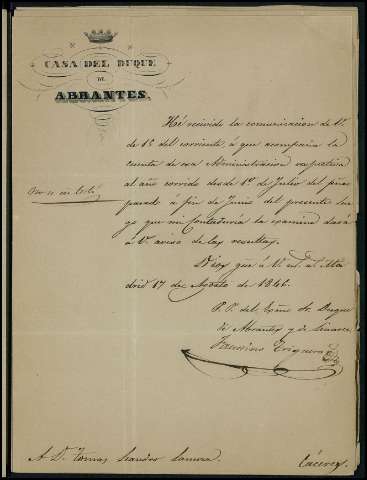 CASA DEL DUQUE
DE
ABRANTES.
Hé recivido la comunicacion de V.
de 1º del corriente, á que acompaña la
cuenta de esa Administracion respectiva
al año corrido desde 1º de Julio del proximo
pasado á fin de Junio del presente lue
go que mi contaduria la examine dará
á V. aviso de las resultas.
Dios gue á V. Ma
drid 17 de Agosto de 1846.
P. P. del Exmo Sr. Duque
de Abrantes y de Linares
Faustino
A D. Tomas Leandro Zamora.
Cáceres.